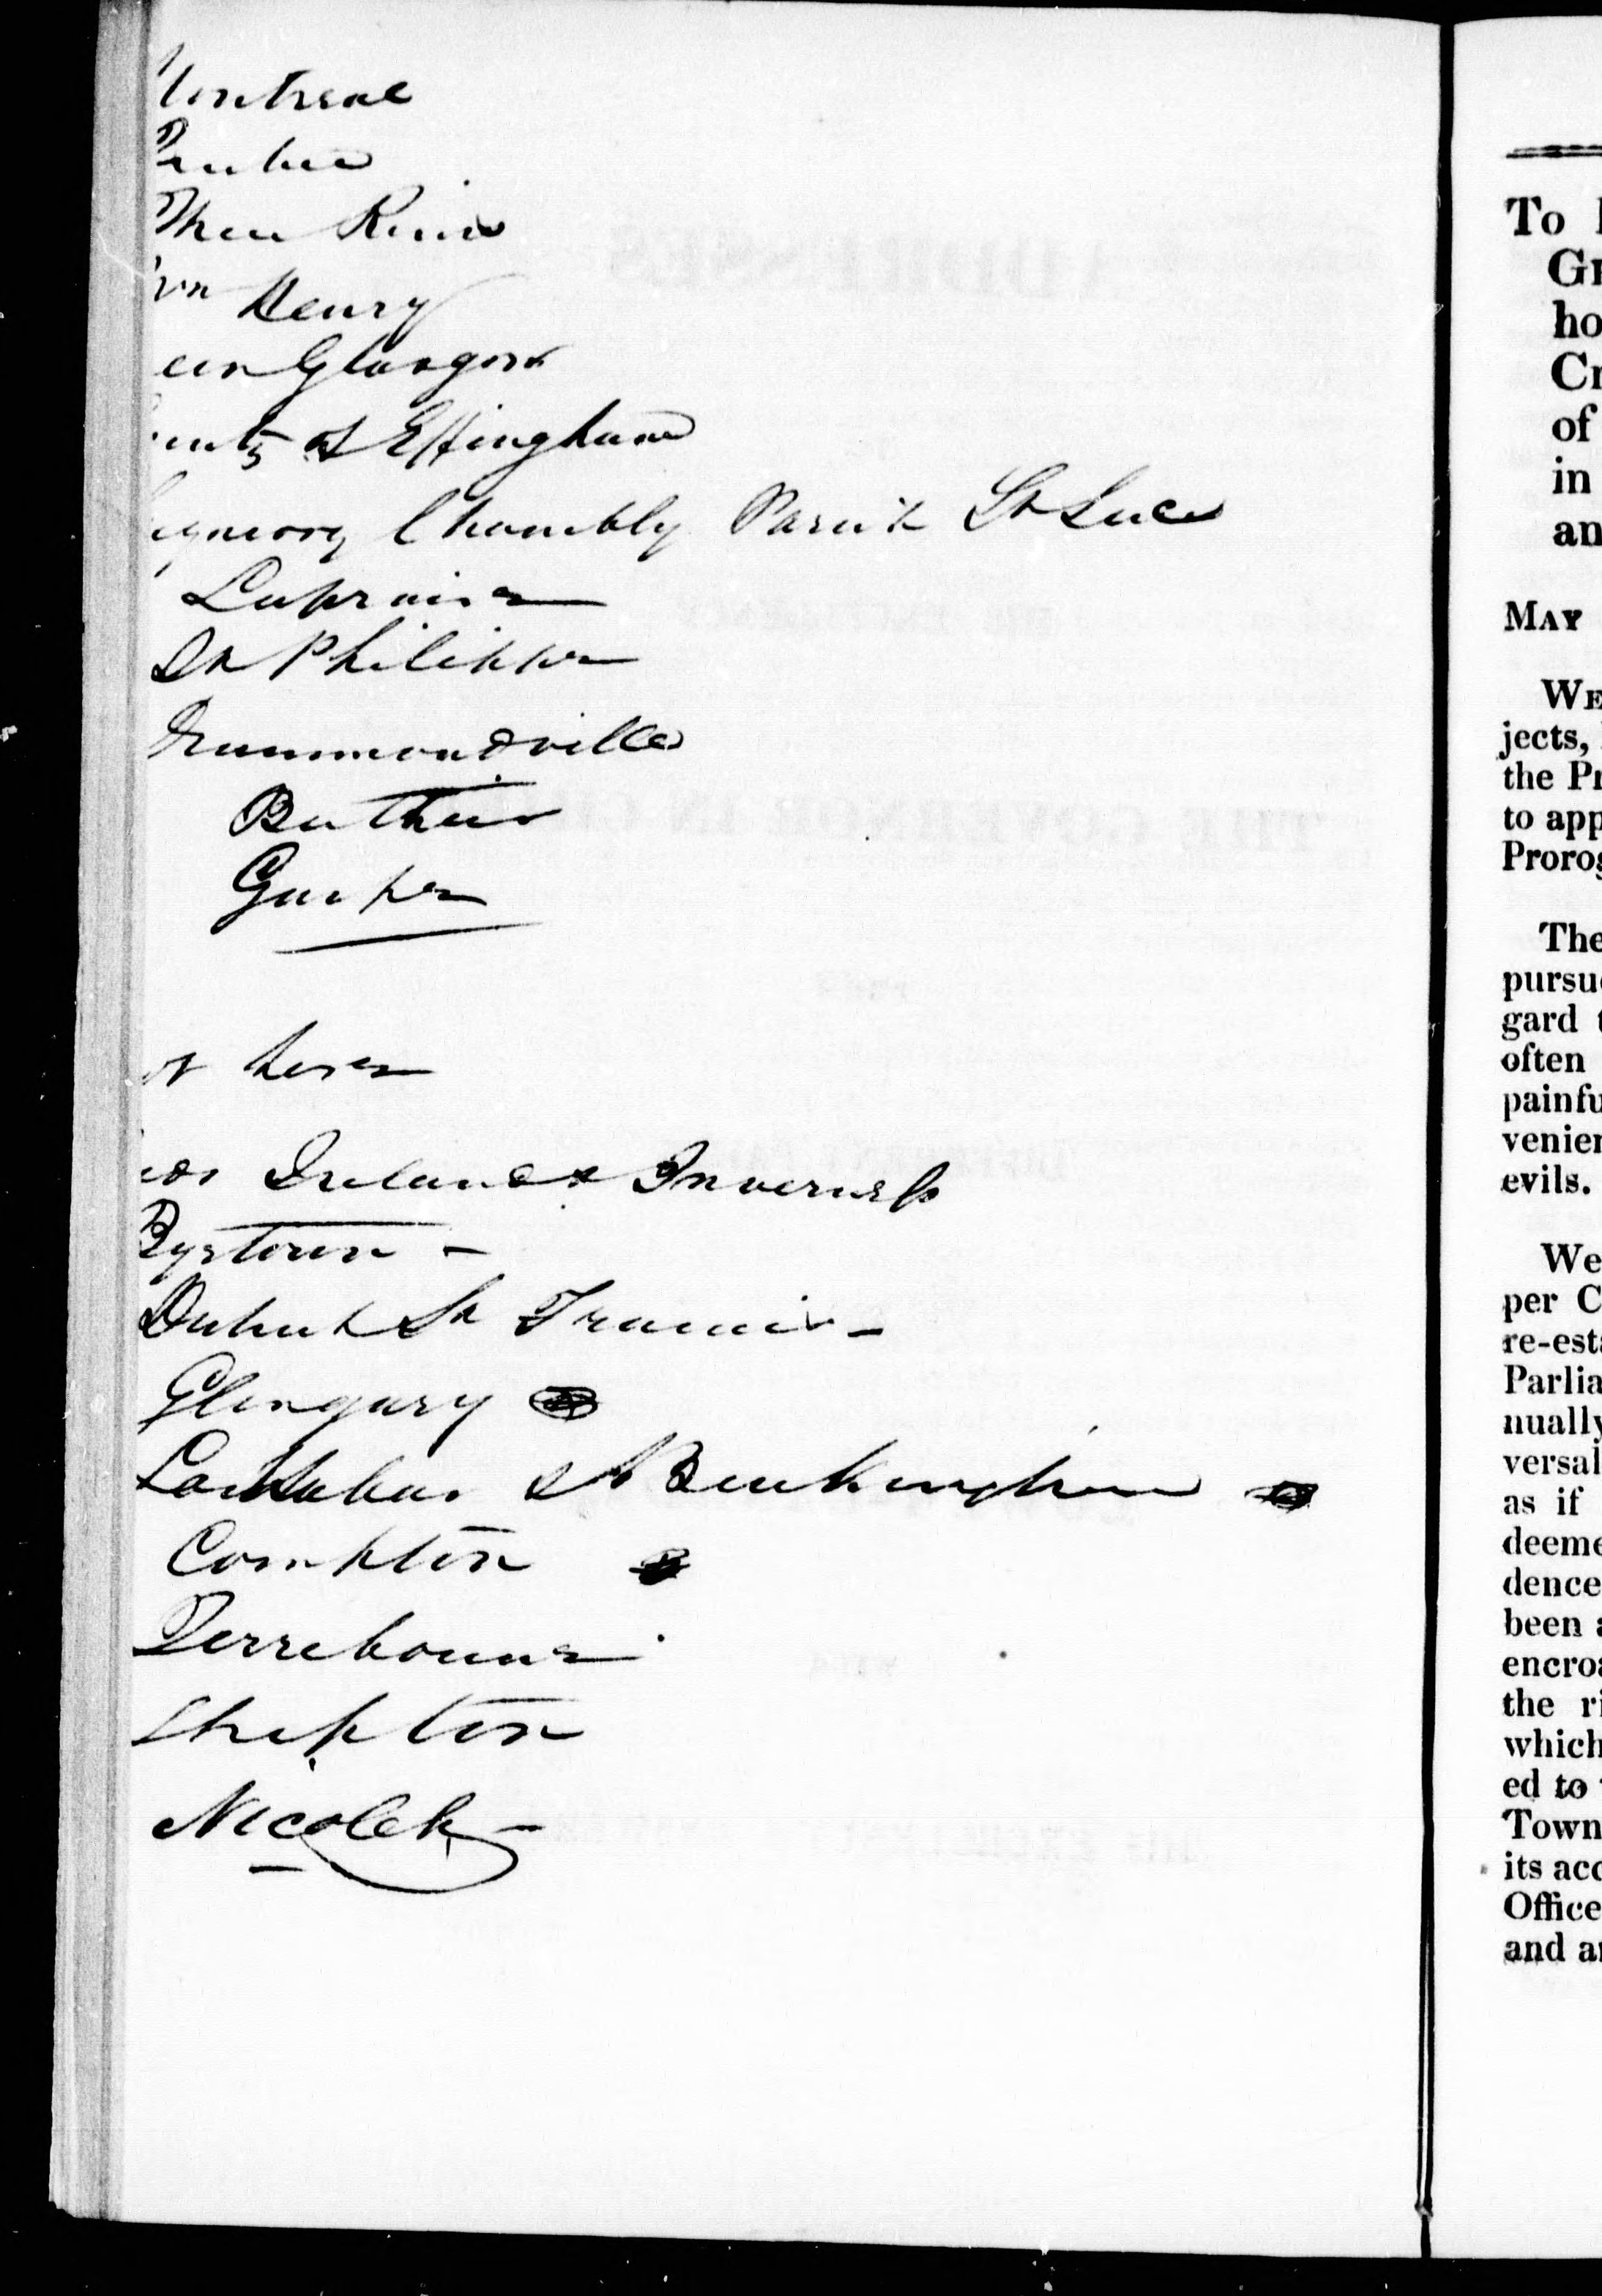 Montreal
Quebec
Three Rivers
Henry
Glasgow
of Effingham
Chambly Parish St Luc
Laprairie
St Philippe
Drummondville
Berthier
Gaspe
here
Ireland & Inverness
Bytown -
District St Francis -
Glengary
Lochaber & Buckingham
Compton
Terrebonne
Shipton
Nicolet -
To
of
in
an
MAY
WE
jects,
the Pr
to app
Prorog
The
pursue
gard t
often
painfu
venien
evils.
We
per C
re-esta
Parlia
nually
versal
as if
deeme
dence
been a
encroa
the ri
which
ed to
Town
its acc
Office
and a